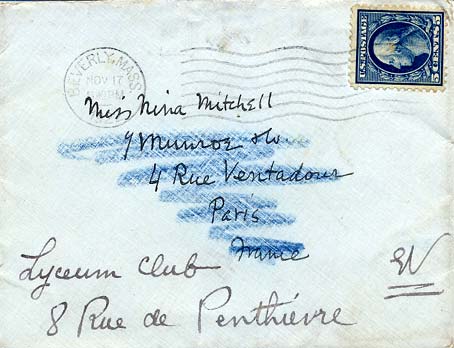 U.S. POSTAGE
5 CENTS 5
BEVERLY, MASS.
NOV 17
PM
Miss Nina Mitchell
4 Rue Ventadour
Paris
France
Lyceum Club
8 Rue de Penthièvre
EV